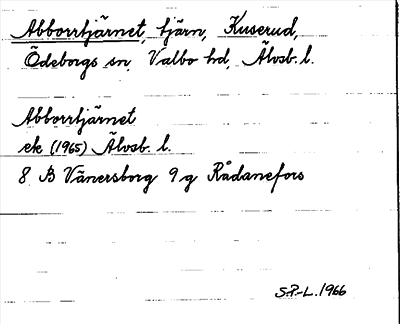 Abborrtjärnet, tjärn, Kuserud,
Ödeborgs sn, Valbo hd, Älvsb. l.
Abborrtjärnet
ek (1965) Älvsb. l.
8 B Vänersborg 9 g Rådanefors
S.P.-L. 1966